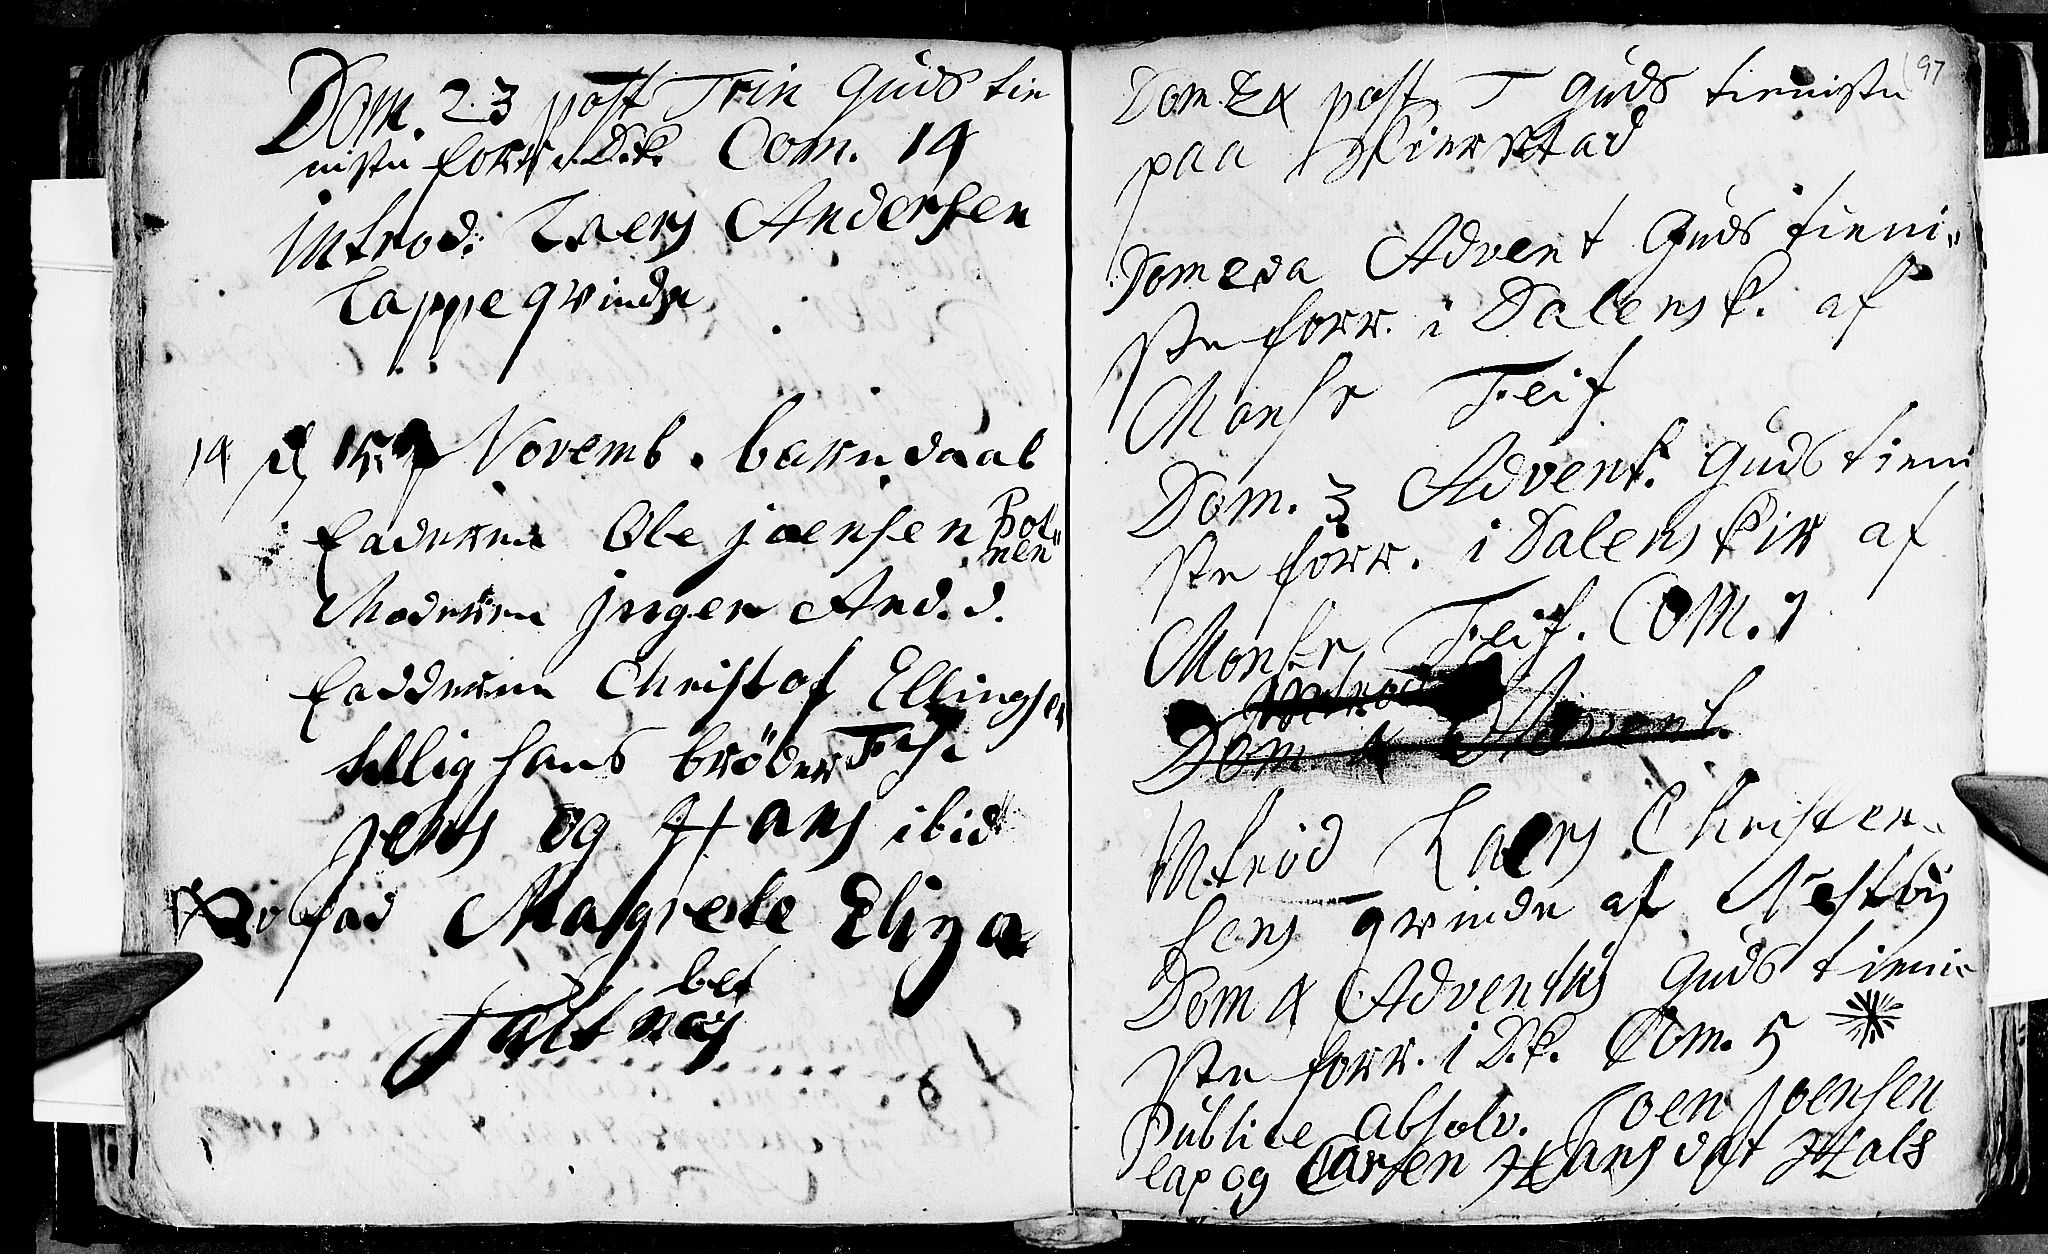 Dom. 23 post Trin Guds tie
niste forr. i D.k. Com. 14
introd: Laers Andersen
Lappe qvinde
14 d 15 Novemb. barn daab
Faderen Ole joensen Bot-
nen
Moderen jnger And.d.
Fadderne Christof Ellingsen
hans bröder
jens og Hans ibid
Magrete Eliza
bet
Dom. 24 post T Guds tieniste 97
paa Skierstad
Dom 2da Advent Guds tieni-
ste forr. i Dalens k. af
Monsr Feif
Dom. 3 Advent. Guds tieni
ste forr. i Dalens kir af
Monsr Feif. Com. 7
introd
Dom. 4 Advent.
introd Laers Christen-
sens qvinde af Nestby
Dom 4 Adventus Guds tieni-
ste forr. i D.k. Com. 5
Publice absolv. Joen joensen
lap og Caren Hans dat Hals